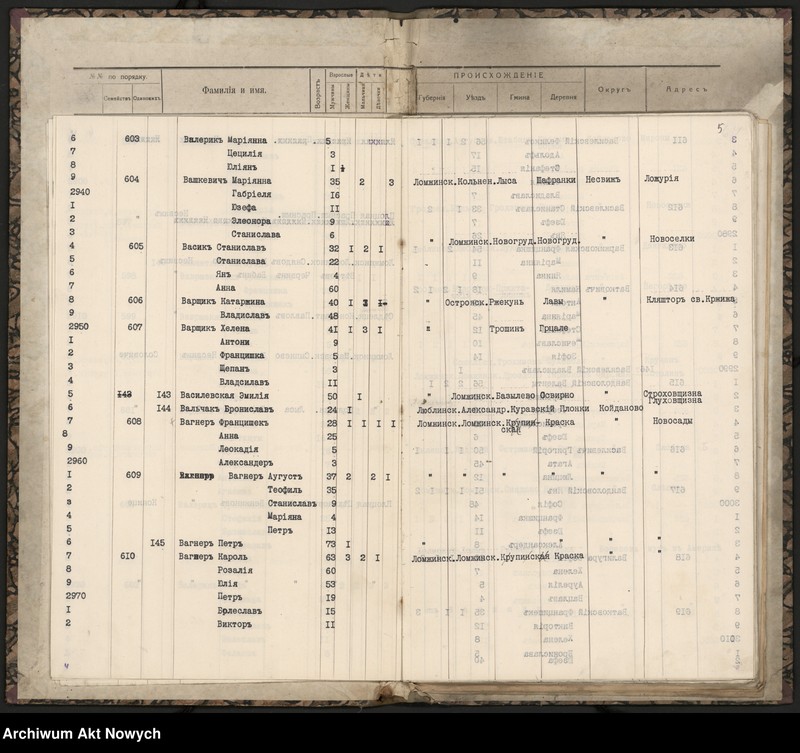 №№ по порядку.
Семействъ Одинокихъ
Фамилія и имя.
Возрастъ
Взрослые
Мужчины
Женщины
Дѣти
Мальчики
Дѣвочки
ПРОИСХОЖДЕНІЕ
Губернія
Уѣздъ
Гмина
Деревня
Округъ
Адресъ
5
6 603 Валерикъ Маріянна 5
7 Цецилія 3
8 Юліянъ I
9 604 Вашкевичъ Маріянна 35 2 3 Ломжинск. Кольнен. Лыса Шафранки Несвижъ Ложурія
2940 Габріеля I6
I Юзефа II
2 Элеонора 9
3 Станислава 6
4 605 Васикъ Станиславъ 32 I 2 I " Ломжинск. Новогруд. Новогруд. " Новоселки
5 Станислава 22
6 Янъ 4
7 Анна 60
8 606 Варщикъ Катаржина 40 I " Островск. Ржекунь Лавы " Кляшторъ св. Кржижа
9 Владиславъ 48
2950 607 Варщикъ Хелена 4I I 3 I " Трошин Грцале
I Антони 9
2 Францишка 5
3 Щепанъ 3
4 Владсилавъ II
5 I43 I43 Василевская Эмилія 50 I " Ломжинск. Базылево Освирно " Строховщизна
Глуховщизна
6 I44 Вальчакъ Брониславъ 24 I Люблинск. Александр. Куравскій Плонки Койданово
7 608 Вагнеръ Францишекъ 28 I I I I Ломжинск. Ломжинск. Крупин-
ская Краска " Новосады
8 Анна 25
9 Леокадія 5
2960 Александеръ 3
I 609 Вагнеръ Аугустъ 37 2 2 I " " " " " "
2 Теофиль 35
3 Станиславъ 9
4 Маріяна 4
5 Петръ I3
6 I45 Вагнеръ Петръ 73 I " " " "
7 6I0 Вагнеръ Кароль 63 3 2 I Ломжинск. Ломжинск. Крупинская Краска " "
8 Розалія 60
9 Юлія 53
2970 Петръ I9
I Брлеславъ I5
2 Викторъ II
Archiwum Akt Nowych